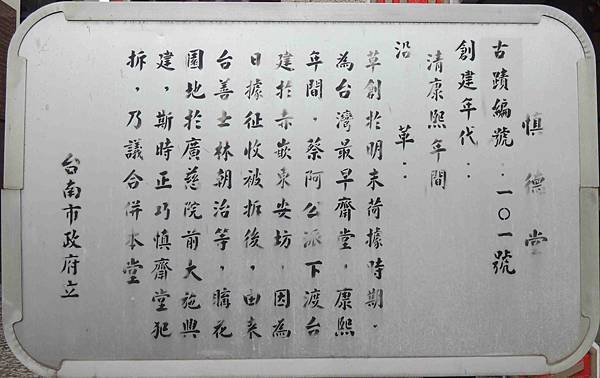 慎德堂
古蹟編號：一○一號
創建年代：
清康熙年間
沿革：
草創於明末荷據時期，
為台灣最早齋堂，康熙
年間，蔡阿公派下渡台
建於赤嵌東安坊，因為
日據征收被拆後，由來
台善士林朝治等，購花
園地於廣慈院前大施興
建，斯時正巧慎齋堂犯
拆，乃議合併本堂
台南市政府立